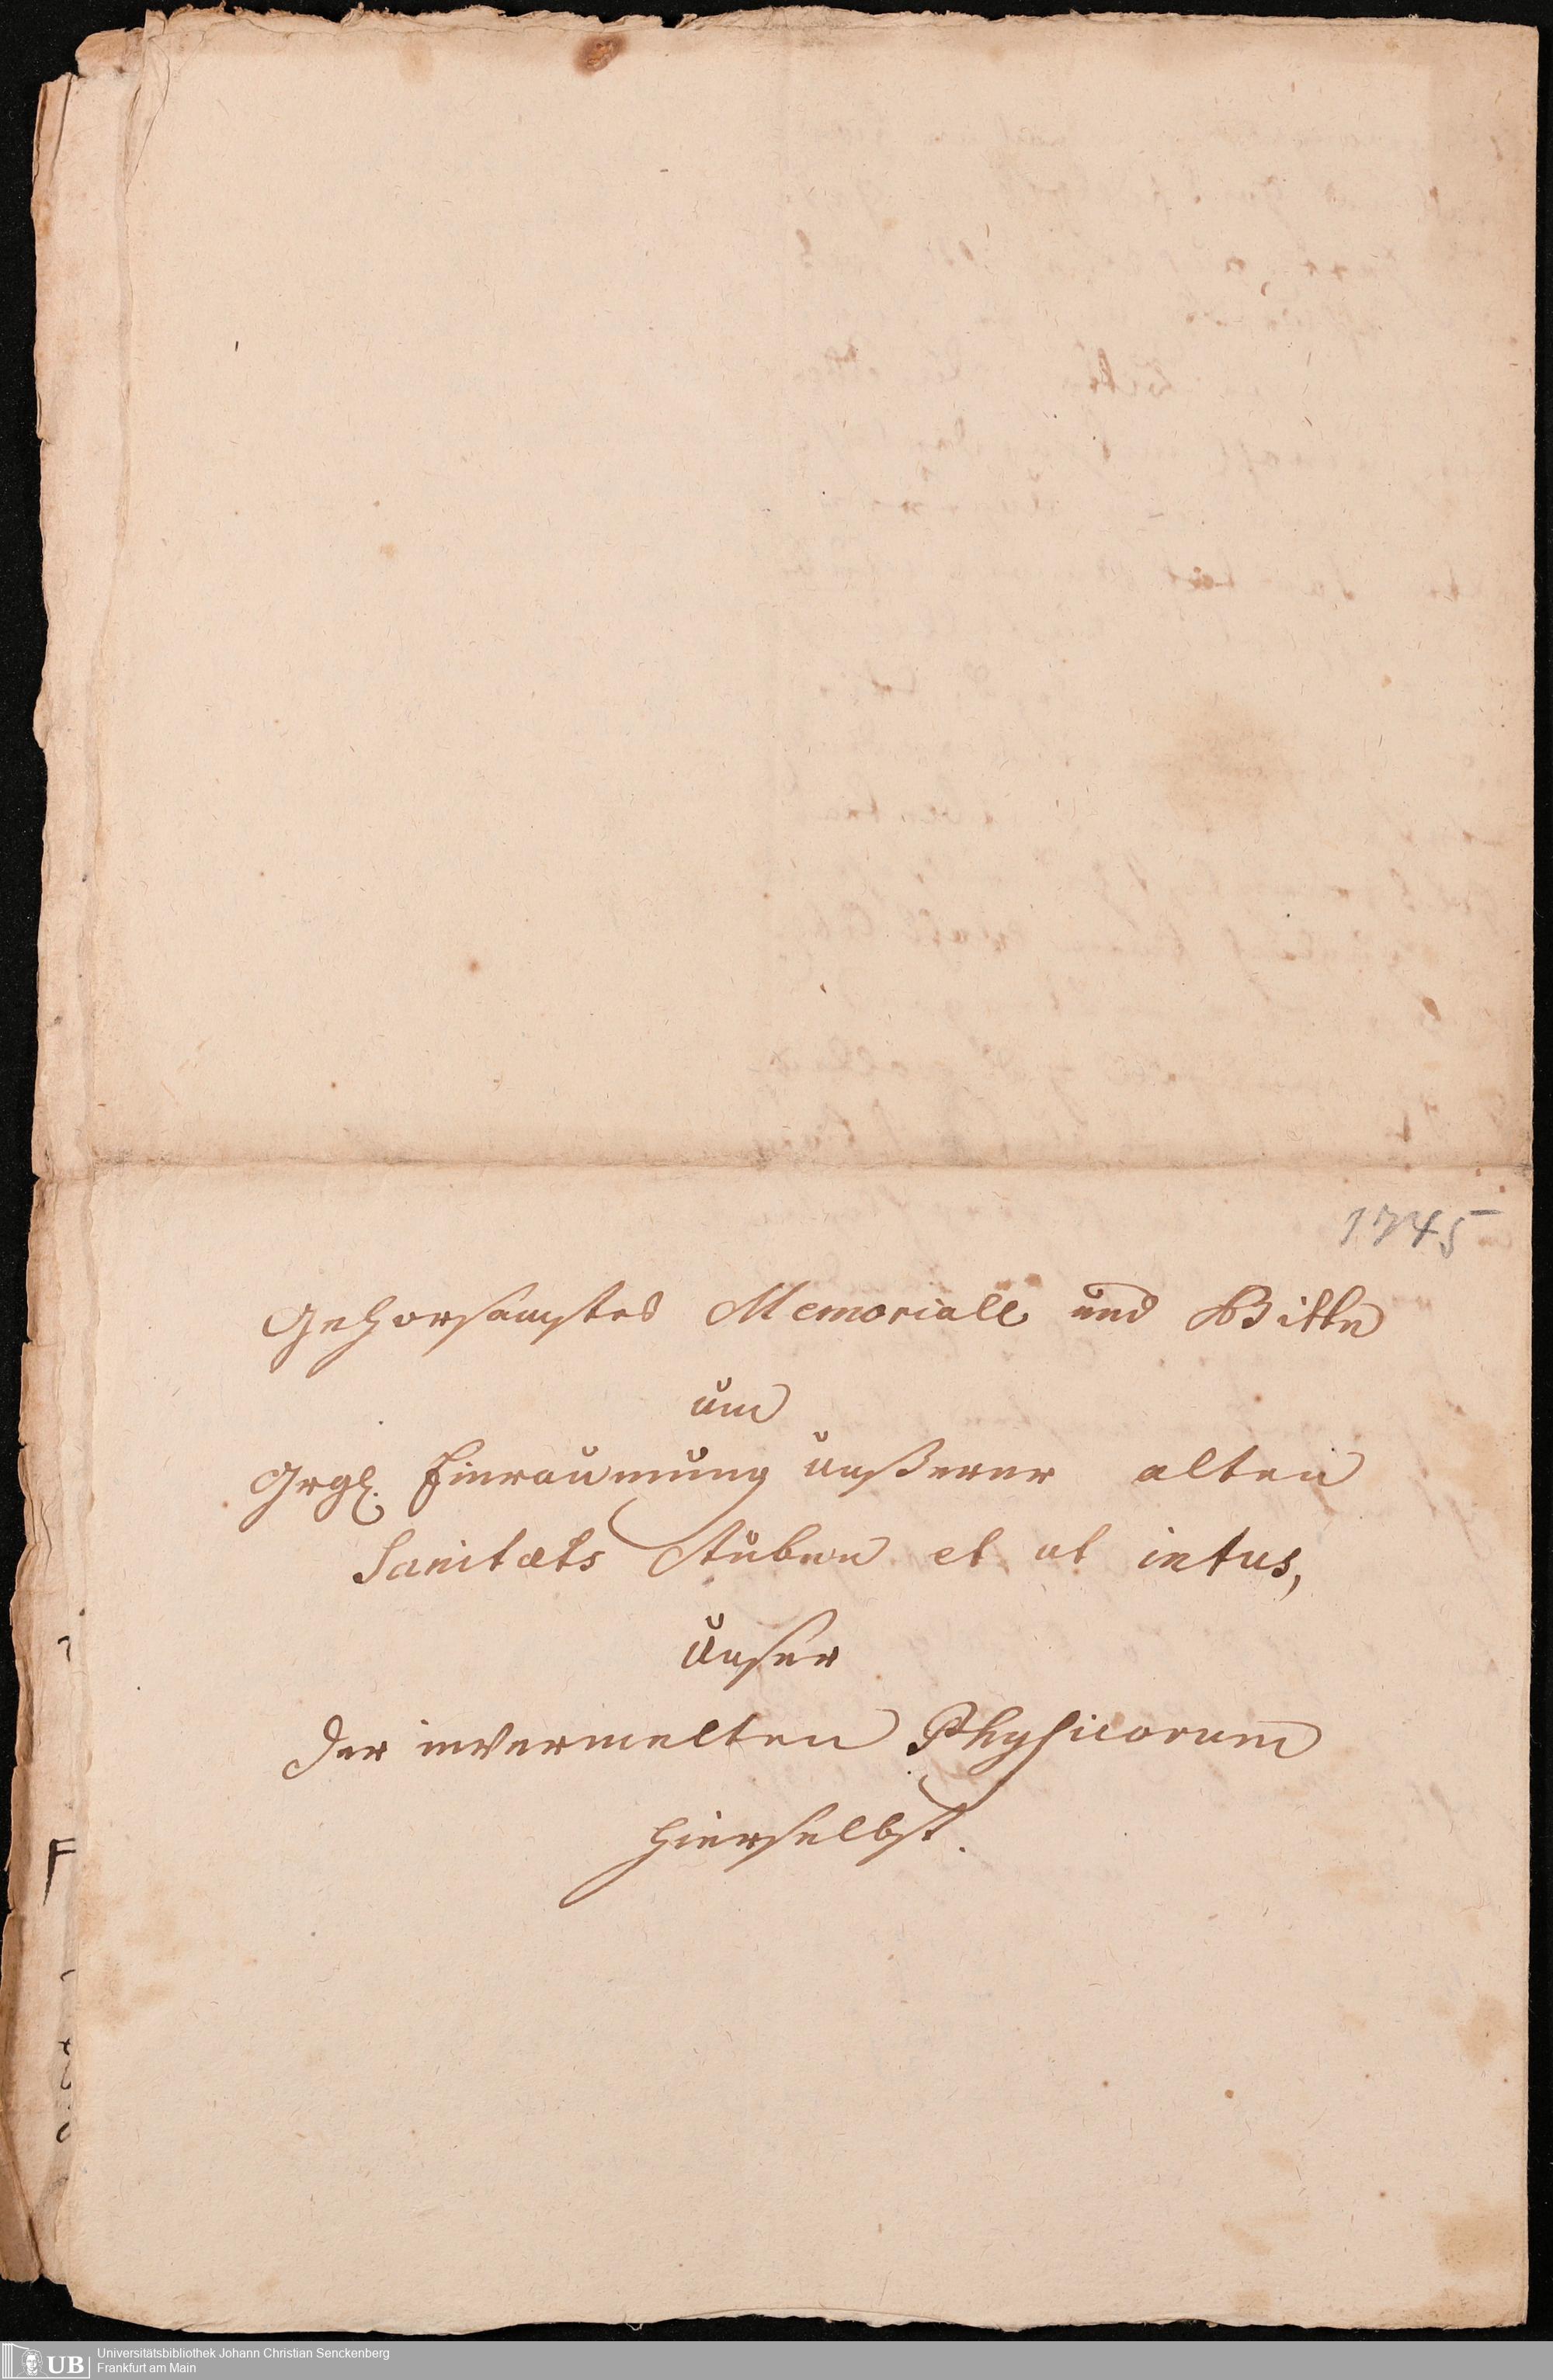 1745
Gehorsamstes Memoriall und Bitte
um
Grgl. Einraumung unßerer alten
Sanitæts Stuben et ut intus,
Unser
der inVermelten Physicorum
hierselbst.
F
UB
Universitätsbibliothek Johann Christian Senckenberg
Frankfurt am Main